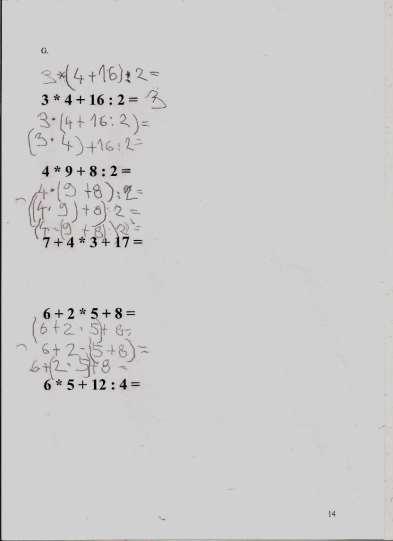 G.
3*(4+16):2=
3 * 4 + 16 : 2 = 3
3·(4+16:2)=
(3·4)+16:2=
4 * 9 + 8 : 2 =
4·(9+8):2=
((4·9)+8):2=
(4·(9+8):2)=
7 + 4 * 3 + 17 =
6 + 2 * 5 + 8 =
(6+2·5)+8=
6+2·(5+8)=
6+(2·5)+8=
6 * 5 + 12 : 4 =
14